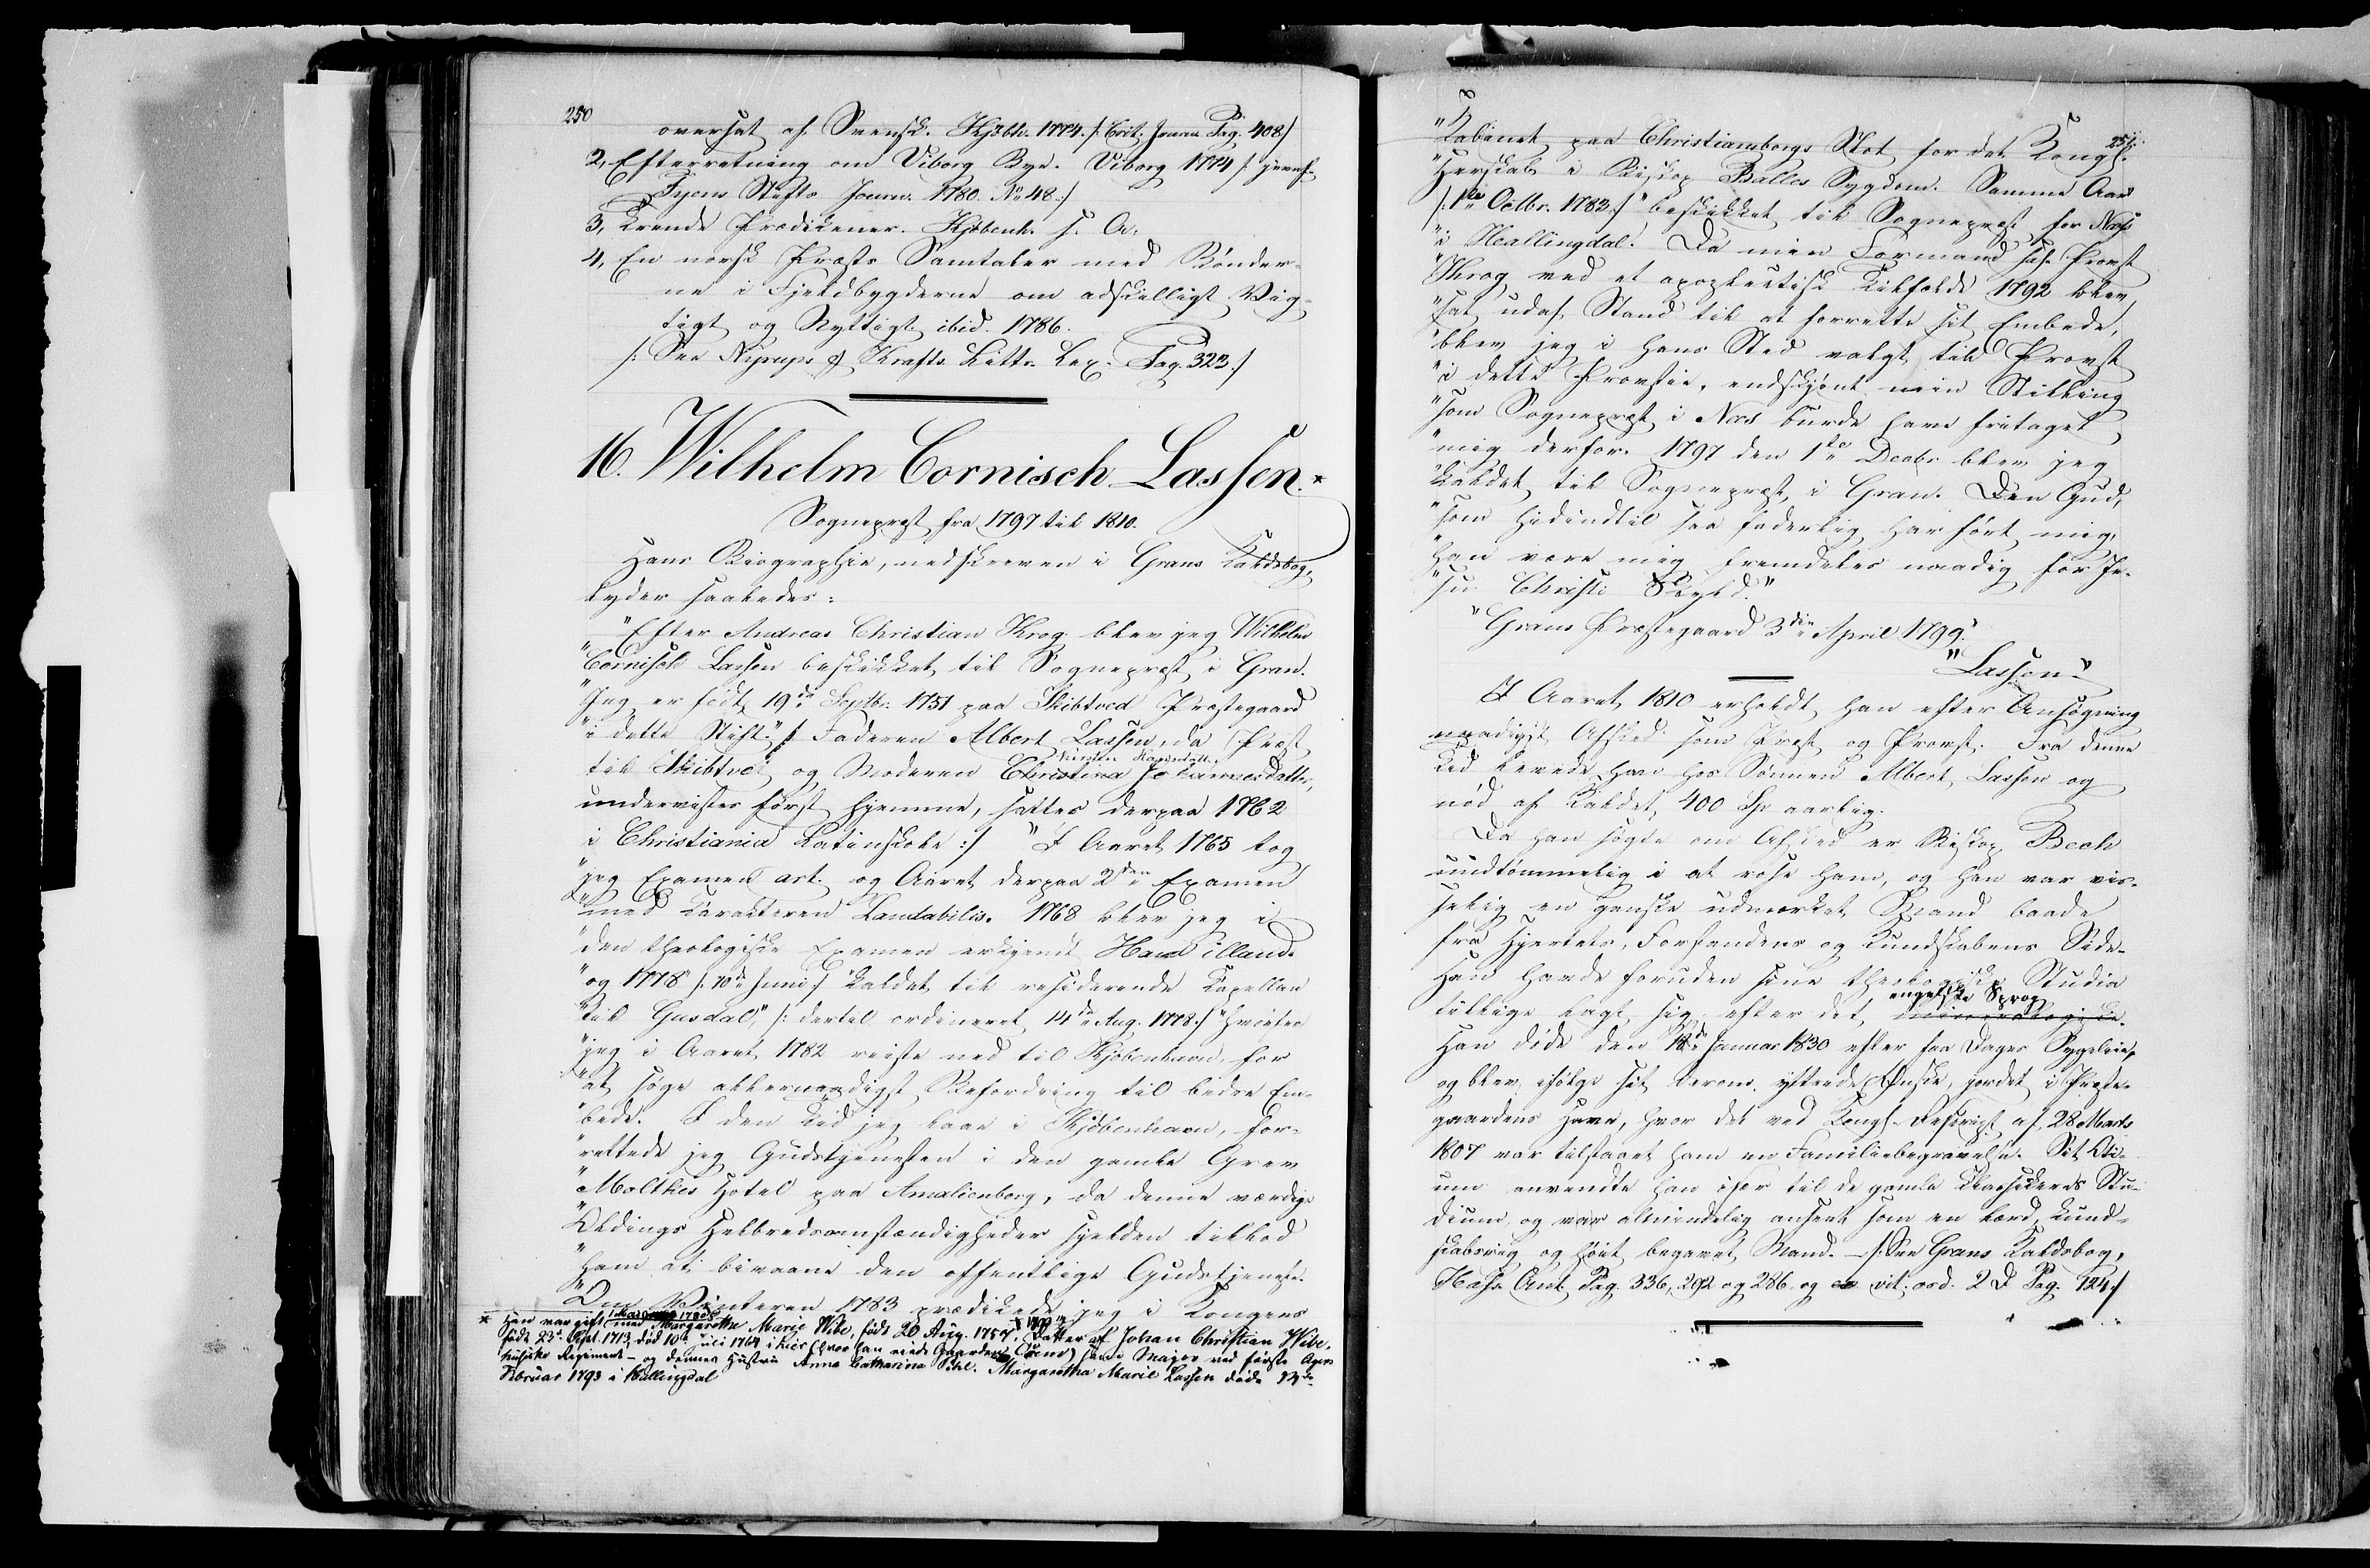 250
oversat af Svensk. Kjöbh. 1774. /: Crit. Journ. Pag. 408 /
2, Efterretning om Viborg Bye. Viborg 1774 /: jevnf.
Fyens Stifts Journ. 1780. No 48 :/
3, Trende Prædikener. Kjöbenh. s. A.
4, En norsk Præsts Samtaler med Bönder-
ne i Fjeldbygderne om adskilligt Vig-
tigt og Nyttigt. ibid. 1786.
/: See Nyerups & Krafts Littr. Lex. Pag. 323 :/
16. Wilhelm Cornisch Lassen. *
Sognepræst fra 1797 til 1810.
Hans Biographie, nedskreven i Grans Kaldsbog,
lyder saaledes:
"Efter Andreas Christian Krog blev jeg Wilhelm
"Cornisch Lassen beskikket til Sognepræst i Gran.
"Jeg er födt 19de Septbr. 1751 paa Skibtved Præstegaard
"i dette Stift." /: Faderen Albert Lassen, da Præst
til Skibtvet og Moderen Christina Johannesdatter,
undervistes först hjemme, sattes derpaa 1762
i Christiania Latinskole :/ "I Aaret 1765 tog
"jeg Examen art. og Aaret derpaa 2den Examen
"med Karakteren Laudabilis. 1768 blev jeg i
"den theologiske Examen erkjendt Haud illaud.
"og 1778" /: 10de Juni :/ "kaldet til residerende Kapellan
"til Gusdal," /: dertil ordineret 14de Aug. 1778 :/ "hvorfra
"jeg i Aaret 1782 reiste ned til Kjöbenhavn, for
"at söge allernaadigst Befordring til bedre Em-
"bede. I den Tid jeg laae i Kjöbenhavn, for-
"rettede jeg Gudstjenesten i den gamle Grev
"Moltkes Hotel paa Amalienborg, da denne værdige
"Oldings Helbredsomstændigheder sjelden tillod
"ham at bivaane den offentlige Gudstjeneste.
"Om Vinteren 1783 prædikede jeg i Kongens
* Han var gift med Margaretha Marie Wibe, födt 20 Aug. 1757, Datter af Johan Christian Wibe,
födt 23de Sept. 1713, död 10de Juli 1764 i Lier (hvor han eiede Gaarden) Major ved förste Agers
husiske Regiment – og dennes Hustru Anna Catharina Pihl. Margaretha Marie Lassen döde
Februar 1793 i Hallingdal
251
"Kabinet paa Christiansborgs Slot for det Kongl.
"Herskab i Biskop Balles Sygdom. Samme Aar
/: 1ste Octbr. 1783 :/ "beskikket til Sognepræst for Næs
"i Hallingdal. Da min Formand Hr. Provst
"Krog ved et apoplectisk Tilfælde 1792 blev
"sat udaf Stand til at forrette sit Embede,
"blev jeg i hans Sted valgt til Provst
"i dette Provstie, endskjönt min Stilling
"som Sognepræst i Næs burde have fritaget
"mig derfor. 1797 den 1ste Decbr blev jeg
"kaldet til Sognepræst i Gran. Den Gud,
"som hidindtil saa faderlig har fört mig,
"han være mig fremdeles naadig for Je-
"su Christi Skyld."
"Grans Præstegaard 3die April 1799."
"Lassen."
I Aaret 1810 erholdt han efter Ansögning
naadigst Afsked som Præst og Provst. Fra denne
Tid levede han hos Sönnen Albert Lassen og
nöd af Kaldet 400 Sp. aarlig.
Da han sögte om Afsked er Biskop Bech
uudtömmelig i at rose ham, og han var vis-
selig en ganske udmærket Mand baade
fra Hjertets, Forstandens og Kundskabens Side.
Han havde foruden sine theologiske Studia
tillige lagt sig efter det engelske Sprog
Han döde den 18de Januar 1830 efter faa Dages Sygeleie,
og blev, ifölge sit derom yttrede Önske, jordet i Præste-
gaardens Have, hvor det ved Kongl. Rescript af 28 Marts
1807 var tilstaaet ham en Familiebegravelse. Sit Oti-
um anvendte han især til de gamle Klassikeres Stu-
dium og var almindelig anseet som en lærd, kund-
skabsrig og höit begavet Mand. – /: See Grans Kaldsbog,
Hafn. Ant. Pag. 336, 292 og 286 og ex vit. ord. 2 D Pag. 124 /